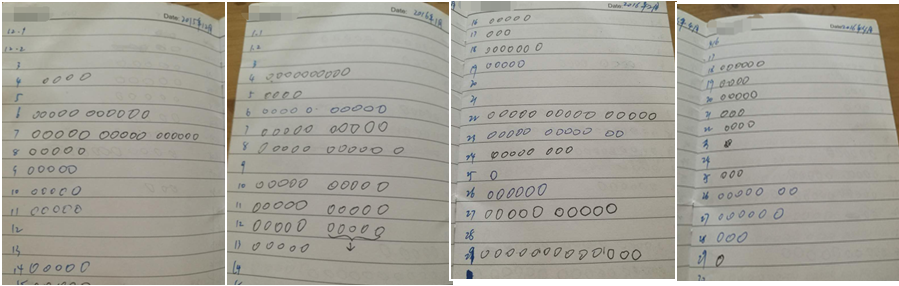 Date: 2015年12月
12-1
12-2
3
4 0000
5
6 00000 000000
7 00000 00000 000000
8 00000
9 00000
10 00000
11 00000
12
13
14 00000
15 00000
Date: 2016年1月
1.1
1.2
3
4 0000000000
5 0000
6 00000 00000
7 00000 00000
8 00000 00000 0
9
10 00000 00000
11 00000 00000
12 00000 00000
13 00000 ↓
14
Date: 2016年2月
16 00000
17 000
18 000000 0
19 00000
20
21
22 00000 00000 00000
23 00000 00000 00
24 00000 000
25 0
26 000000
27 00000 00000
28
29 000000000000
Date: 2016年4月
18 000000
19 0000
20 00000
21 000
22 0000
24
25 000
26 00000 00
27 000000 0
28 000
29 0